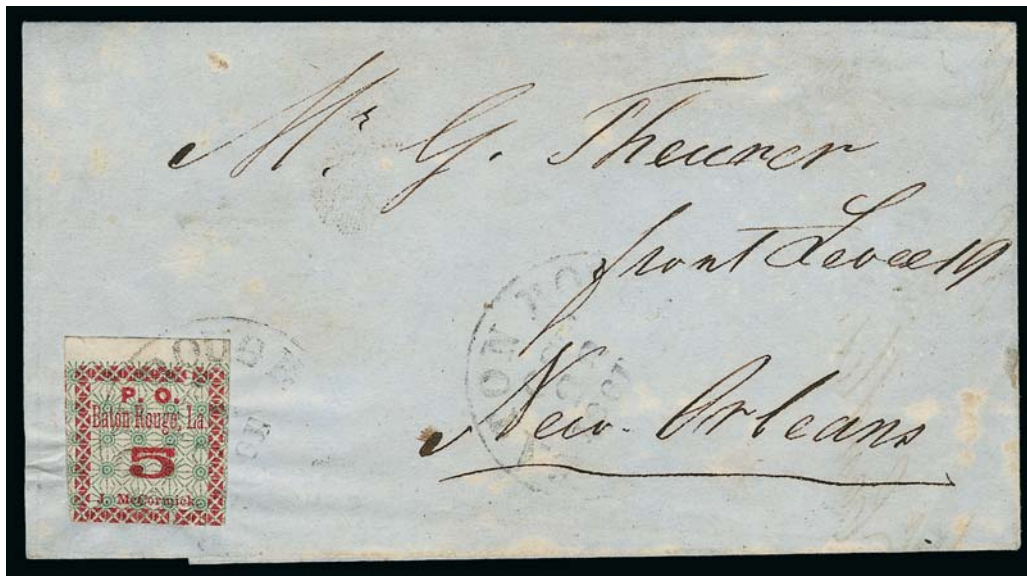 Mr. G. Theurer
front Levee 19
New. Orleans
P. O.
Baton Rouge, La.
5
J. McCormick.
TON RO
ROUGE